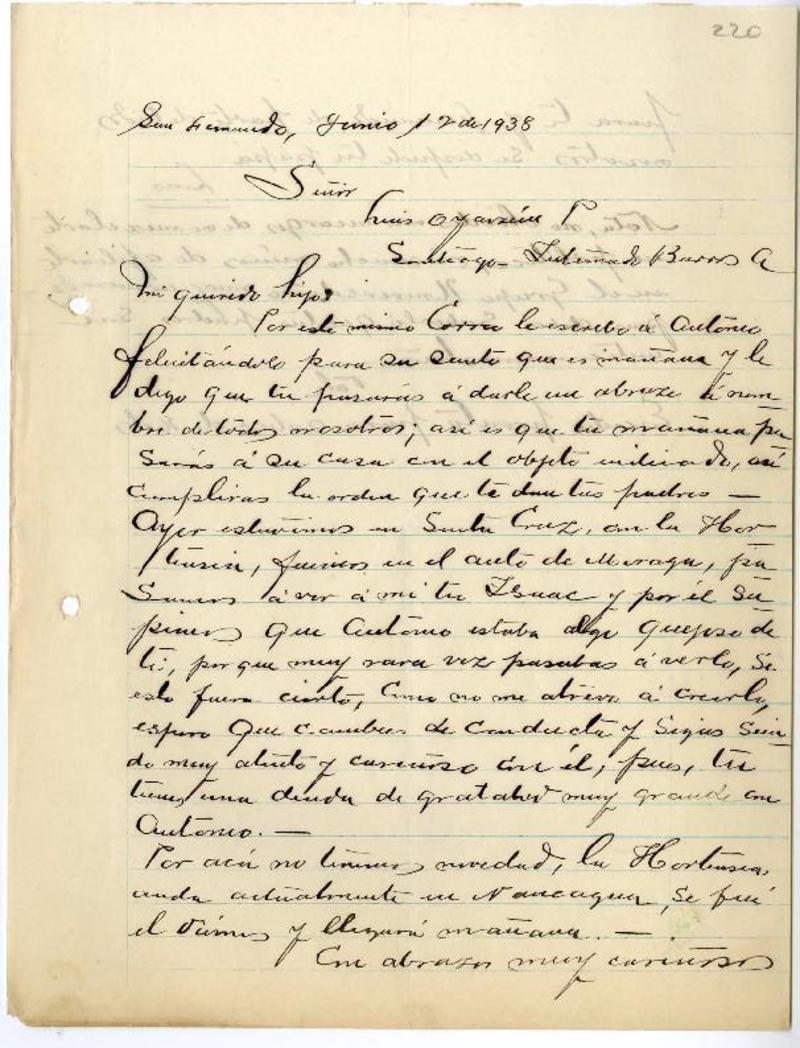 220
San Fernando, Junio 12 de 1938
Señor
Luis Oyarzún P
Santiago - Internado Barros A
Mi querido hijo:
Por este mismo Correo le escribo á Antonio
felicitándolo para su santo que es mañana y le
digo que tu pasarás á darle un abrazo á nom-
bre de todos nosotros; así es que tu mañana pa
sarás á su casa con el objeto indicado, así
cumpliras la orden que te dan tus padres —
Ayer estuvimos en Santa Cruz, con la Hor-
tensia, fuimos en el auto de Moraga, pa
samos á ver á mi tio Isaac y por él su
pimos que Antonio estaba algo quejoso de
ti, por que muy rara vez pasabas á verlo, Si
esto fuera cierto, Como no me atrevo á creerlo,
espero que cambies de conducta y Sigas Sien
do muy atento y cariñoso con él, pues, tu
tienes una deuda de gratitud muy grande con
Antonio. —
Por acá no tenemos novedad, la Hortensia,
anda actualmente en Nancagua, Se fué
el Viernes y llegará mañana. —
Con abrazos muy cariñosos